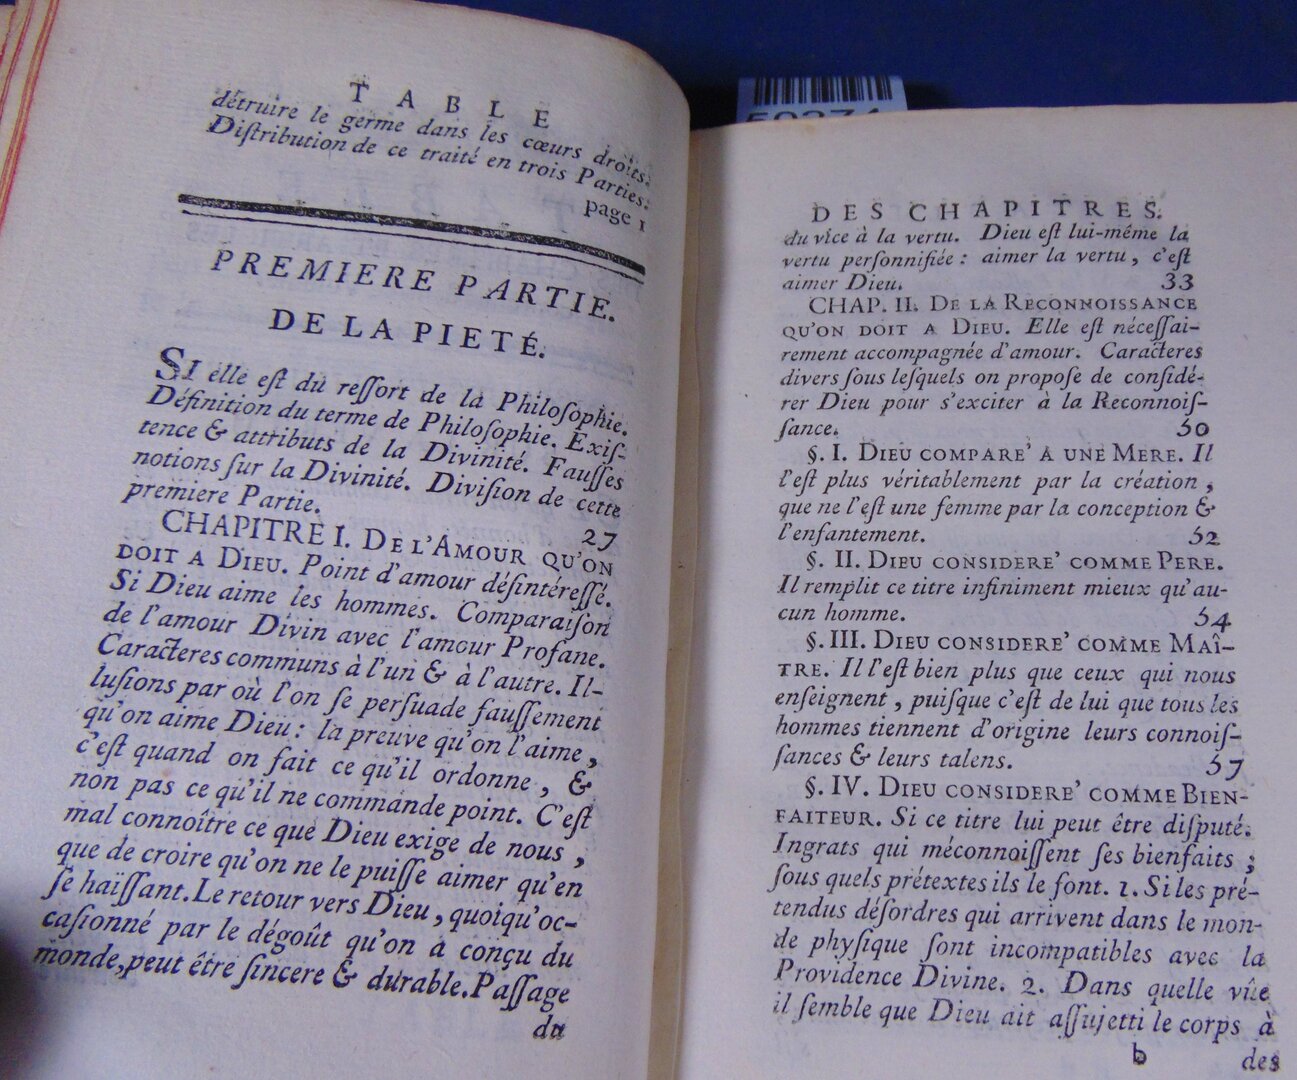 TABLE
détruire le germe dans les cœurs droits.
Distribution de ce traité en trois Parties.
page 1
PREMIERE PARTIE.
DE LA PIETÉ.
SI elle eſt du reſſort de la Philoſophie.
Définition du terme de Philoſophie. Exiſ-
tence & attributs de la Divinité. Fauſſes
notions ſur la Divinité. Diviſion de cette
premiere Partie. 27
CHAPITRE I. DE L'AMOUR QU'ON
DOIT A DIEU. Point d'amour déſintéreſſé.
Si Dieu aime les hommes. Comparaiſon
de l'amour Divin avec l'amour Profane.
Caracteres communs à l'un & à l'autre. Il-
luſions par où l'on ſe perſuade fauſſement
qu'on aime Dieu : la preuve qu'on l'aime,
c'eſt quand on fait ce qu'il ordonne, &
non pas ce qu'il ne commande point. C'eſt
mal connoître ce que Dieu exige de nous,
que de croire qu'on ne le puiſſe aimer qu'en
ſe haïſſant. Le retour vers Dieu, quoiqu'oc-
caſionné par le dégoût qu'on a conçu du
monde, peut être ſincere & durable. Paſſage
du
50274
DES CHAPITRES.
du vice à la vertu. Dieu eſt lui-même la
vertu perſonnifiée : aimer la vertu, c'eſt
aimer Dieu. 33
CHAP. II. DE LA RECONNOISSANCE
QU'ON DOIT A DIEU. Elle eſt néceſſai-
rement accompagnée d'amour. Caracteres
divers ſous leſquels on propoſe de conſidé-
rer Dieu pour s'exciter à la Reconnoiſ-
ſance. 50
§. I. DIEU COMPARE' A UNE MERE. Il
l'eſt plus véritablement par la création,
que ne l'eſt une femme par la conception &
l'enfantement. 52
§. II. DIEU CONSIDERE' COMME PERE.
Il remplit ce titre infiniment mieux qu'au-
cun homme. 54
§. III. DIEU CONSIDERE' COMME MAÎ-
TRE. Il l'eſt bien plus que ceux qui nous
enſeignent, puiſque c'eſt de lui que tous les
hommes tiennent d'origine leurs connoiſ-
ſances & leurs talens. 57
§. IV. DIEU CONSIDERE' COMME BIEN-
FAITEUR. Si ce titre lui peut être diſputé.
Ingrats qui méconnoiſſent ſes bienfaits ;
ſous quels prétextes ils le font. 1. Si les pré-
tendus déſordres qui arrivent dans le mon-
de phyſique ſont incompatibles avec la
Providence Divine. 2. Dans quelle vûe
il ſemble que Dieu ait aſſujetti le corps à
b des